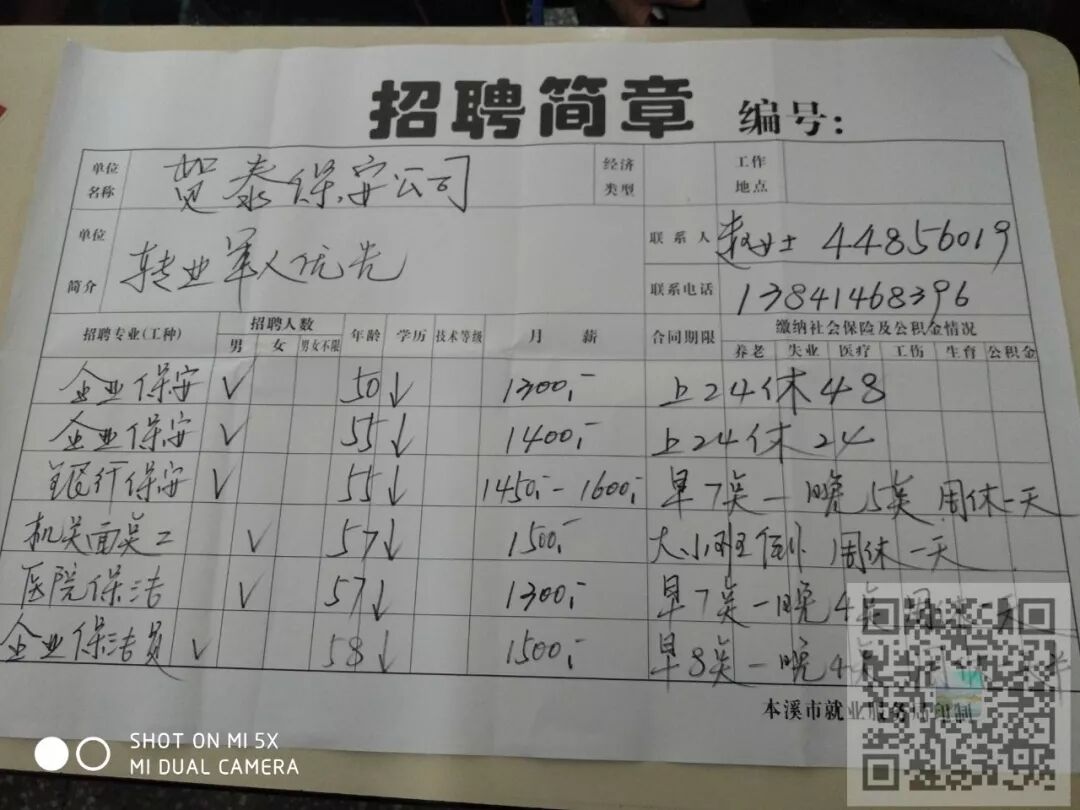 招聘简章 编号:
单位名称 贺泰保安公司 经济类型 工作地点
单位简介 转业军人优先 联系人 赵女士 44856019
联系电话 13841468396
招聘专业(工种) 招聘人数 年龄 学历 技术等级 月薪 合同期限 缴纳社会保险及公积金情况
男 女 男女不限 养老 失业 医疗 工伤 生育 公积金
企业保安 √ 50↓ 1300.- 上24休48
企业保安 √ 55↓ 1400.- 上24休24
银行保安 √ 55↓ 1450.- - 1600.- 早7点一晚5点 周休一天
机关面点工 √ 57↓ 1500.- 大小班倒 周休一天
医院保洁 √ 57↓ 1300.- 早7点一晚4点 周休一天
企业保洁员 √ 58↓ 1500.- 早8点一晚4点 周
本溪市就业服务局印制
SHOT ON MI 5X
MI DUAL CAMERA